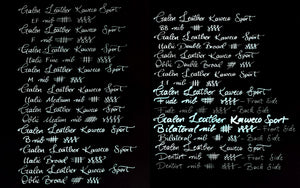 Galen Leather Kaweco Sport
EF nib
Galen Leather Kaweco Sport
F nib
Galen Leather Kaweco Sport
Italic Fine nib
Galen Leather Kaweco Sport
M nib
Galen Leather Kaweco Sport
Italic Medium nib
Galen Leather Kaweco Sport
Oblic Medium nib
Galen Leather Kaweco Sport
B nib
Galen Leather Kaweco Sport
Italic Broad
Galen Leather Kaweco Sport
Oblic Broad
Galen Leather Kaweco Sport
BB nib
Galen Leather Kaweco Sport
Italic Double Broad
Galen Leather Kaweco Sport
Oblic Double Broad
Galen Leather Kaweco Sport
nib
Galen Leather Kaweco Sport
Fude nib Front Side
Galen Leather Kaweco Sport
Fude nib Back Side
Galen Leather Kaweco Sport
Bilateral nib Front Side
Galen Leather Kaweco Sport
Bilateral nib Back Side
Galen Leather Kaweco Sport
nib Front Side
Galen Leather Kaweco Sport
nib Back Side